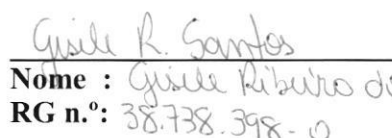 Gisele R. Santos
Nome : Gisele Ribeiro do
RG n.º: 38.738.398-0